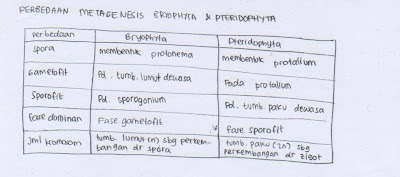 PERBEDAAN METAGENESIS BRYOPHYTA & PTERIDOPHYTA
perbedaan Bryophyta Pteridophyta
spora membentuk protonema membentuk protallium
Gametofit Pd. tumb. lumut dewasa Pada protallium
Sporofit Pd. sporogonium Pd. tumb. paku dewasa
Fase dominan Fase gametofit fase sporofit
Jml kromosom tumb. lumut (n) sbg perkem- tumb. paku (2n) sbg
bangan dr spora perkembangan dr zigot